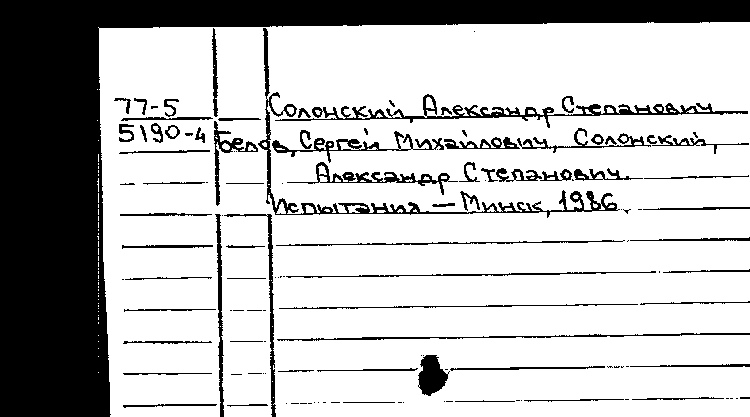 77-5 Солонский, Александр Степанович
5190-4 Белов, Сергей Михайлович, Солонский,
Александр Степанович.
Испытания. — Минск, 1986.